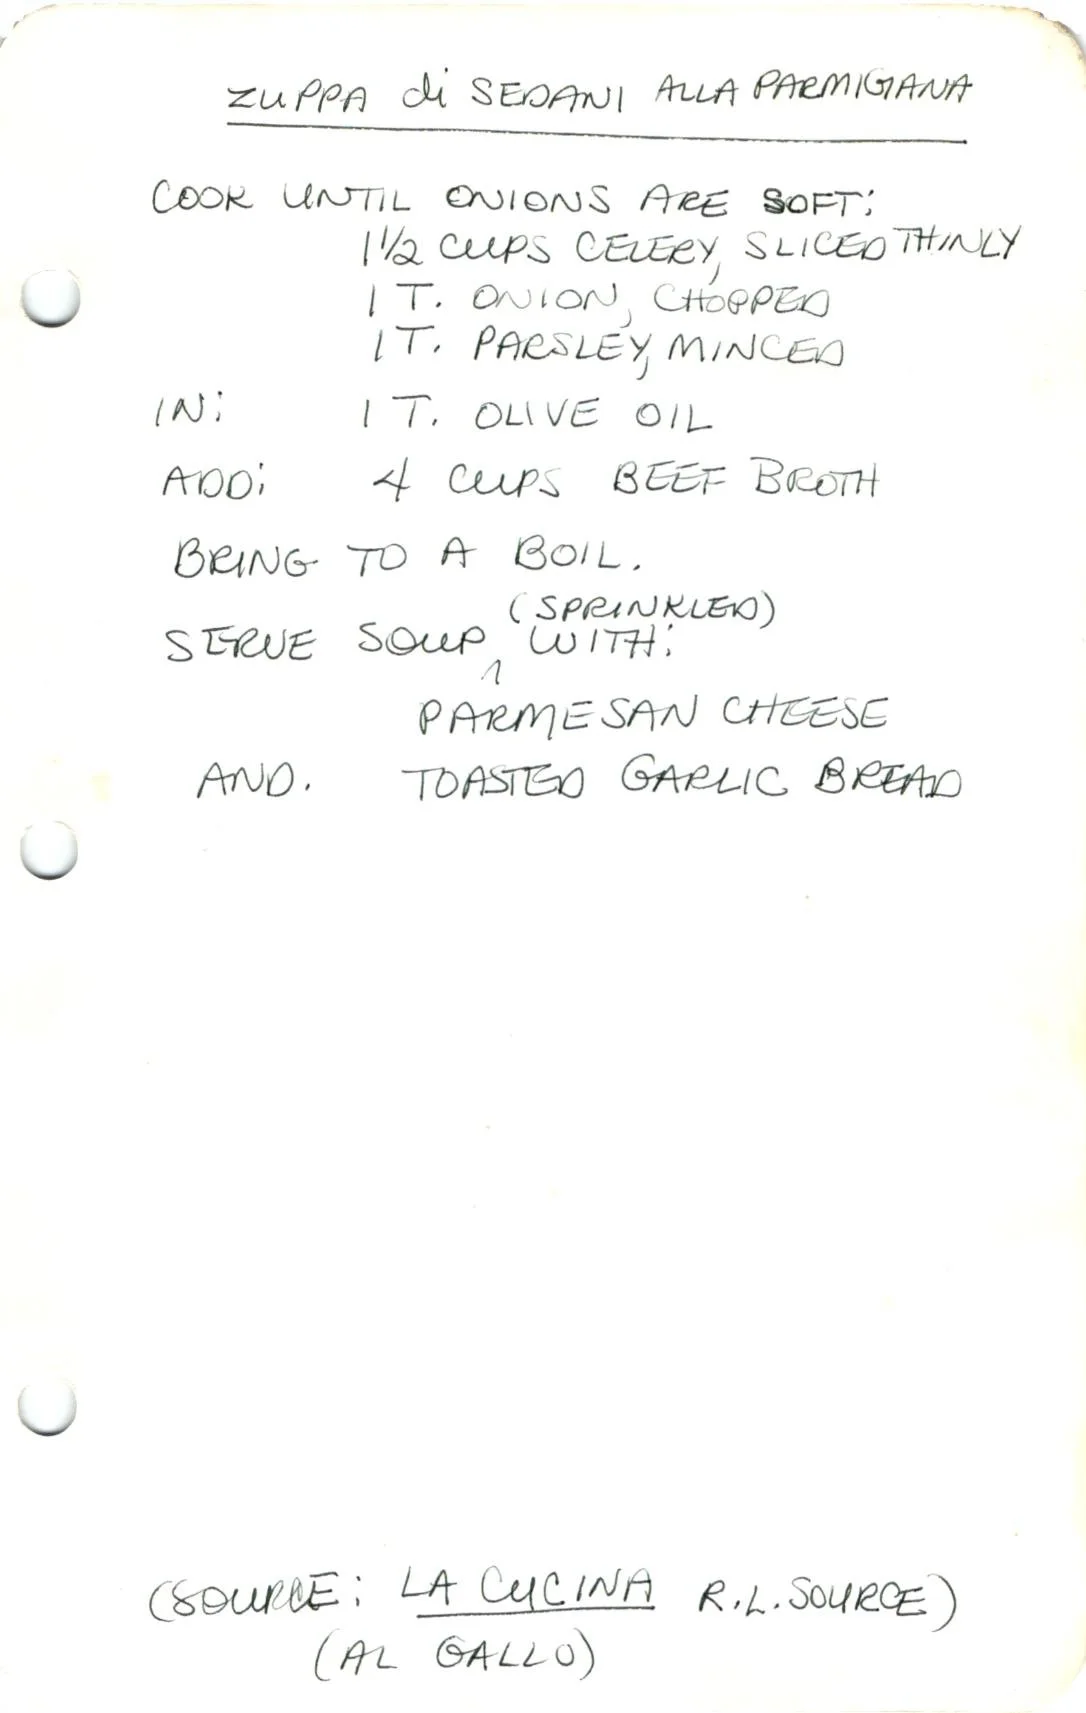 ZUPPA di SEDANI ALLA PARMIGIANA
COOK UNTIL ONIONS ARE SOFT:
1 1/2 CUPS CELERY, SLICED THINLY
1 T. ONION, CHOPPED
1 T. PARSLEY, MINCED
IN: 1 T. OLIVE OIL
ADD: 4 CUPS BEEF BROTH
BRING TO A BOIL.
(SPRINKLED)
SERVE SOUP ^ WITH:
PARMESAN CHEESE
AND. TOASTED GARLIC BREAD
(SOURCE: LA CUCINA R.L. SOURCE)
(AL GALLO)